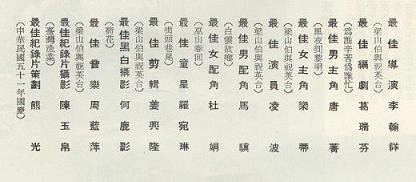 最佳導演李翰詳
(梁山伯與祝英台)
最佳編劇葛瑞芬
(為誰辛苦為誰忙)
最佳男主角唐菁
(黑夜到黎明)
最佳女主角樂蒂
(梁山伯與祝英台)
最佳演員凌波
(梁山伯與祝英台)
最佳男配角馬驥
(白雲故鄉)
最佳女配角杜娟
(巫山春回)
最佳童星羅宛琳
(街頭巷尾)
最佳剪輯姜興隆
(梁山伯與祝英台)
最佳黑白攝影何鹿影
(荷花)
最佳音樂周藍萍
(梁山伯與祝英台)
最佳紀錄片攝影陳玉帛
(臺灣漁業)
最佳紀錄片策劃熊光
(中華民國五十一年國慶)